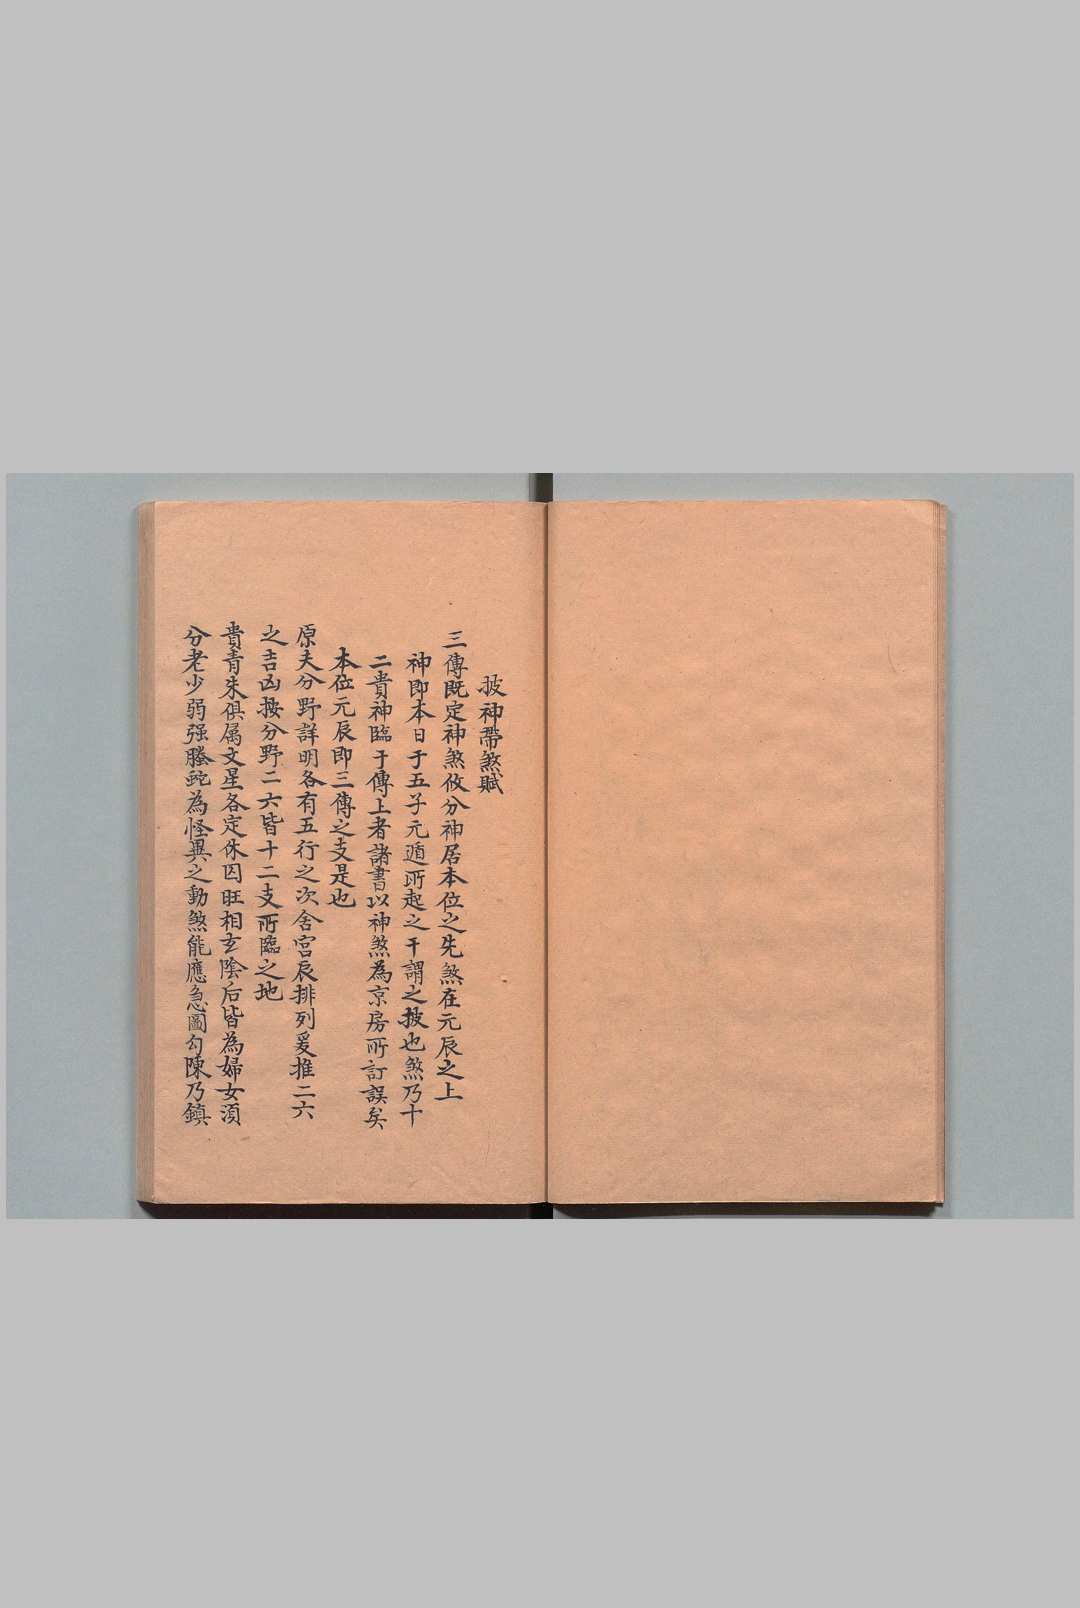 披神帶煞賦
三傳既定神煞攸分神居本位之先煞在元辰之上
神即本日于五子元遁所起之干謂之披也煞乃十
二貴神臨于傳上者諸書以神煞為京房所訂誤矣
本位元辰即三傳之支是也
原夫分野詳明各有五行之次舍宮辰排列爰推二六
之吉凶按分野二六皆十二支所臨之地
貴青朱俱属文星各定休囚旺相玄陰后皆為婦女須
分老少弱强螣蛇為怪異之動煞能應急圖勾陳乃鎮